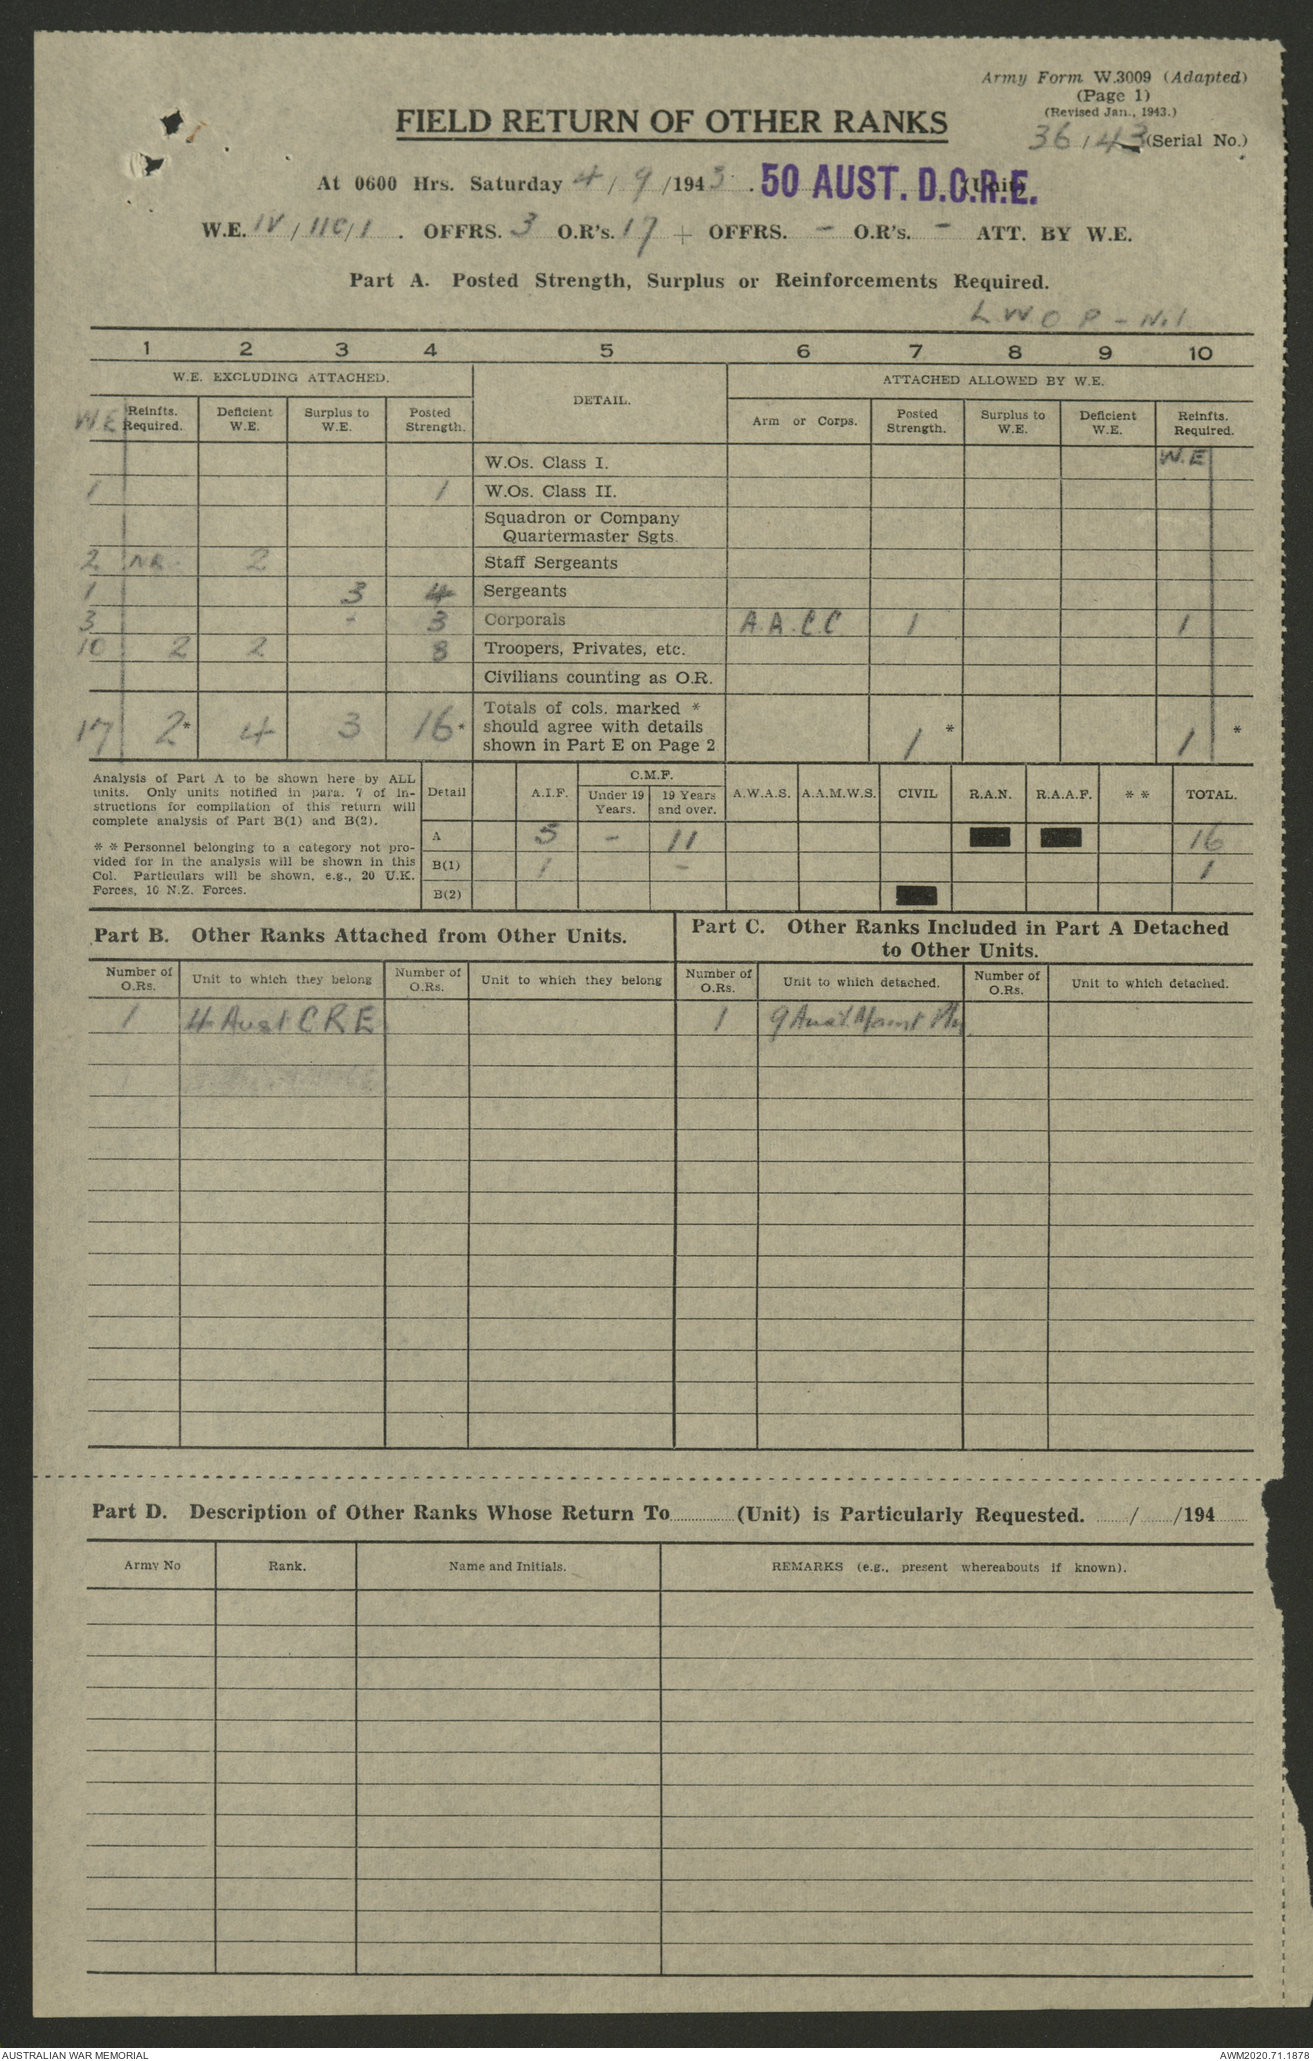 Army Form W.3009 (Adapted)
(Page 1)
(Revised Jan., 1943.)
36/43 (Serial No.)
FIELD RETURN OF OTHER RANKS
At 0600 Hrs. Saturday 4/9/1943. 50 AUST. D.C.R.E. (Unit)
W.E. IV/11C/1. OFFRS. 3 O.R's. 17 + OFFRS. - O.R's. - ATT. BY W.E.
Part A. Posted Strength, Surplus or Reinforcements Required.
L.W.O.P - Nil
1 2 3 4 5 6 7 8 9 10
W.E. EXCLUDING ATTACHED. DETAIL. ATTACHED ALLOWED BY W.E.
W.E Reinfts. Required. Deficient W.E. Surplus to W.E. Posted Strength. Arm or Corps. Posted Strength. Surplus to W.E. Deficient W.E. Reinfts. Required.
W.Os. Class I. W.E
1 1 W.Os. Class II.
Squadron or Company
Quartermaster Sgts.
2 NR. 2 Staff Sergeants
1 3 4 Sergeants
3 - 3 Corporals A.A.C.C 1 1
10 2 2 8 Troopers, Privates, etc.
Civilians counting as O.R.
17 2* 4 3 16* Totals of cols. marked *
should agree with details
shown in Part E on Page 2 1 * 1 *
Analysis of Part A to be shown here by ALL
units. Only units notified in para. 7 of in-
structions for compilation of this return will
complete analysis of Part B(1) and B(2).
* * Personnel belonging to a category not pro-
vided for in the analysis will be shown in this
Col. Particulars will be shown, e.g., 20 U.K.
Forces, 10 N.Z. Forces.
C.M.F.
Detail A.I.F. Under 19 Years. 19 Years and over. A.W.A.S. A.A.M.W.S. CIVIL R.A.N. R.A.A.F. * * TOTAL.
A 5 - 11 16
B(1) 1 - 1
B(2)
Part B. Other Ranks Attached from Other Units.
Part C. Other Ranks Included in Part A Detached
to Other Units.
Number of O.Rs. Unit to which they belong Number of O.Rs. Unit to which they belong Number of O.Rs. Unit to which detached. Number of O.Rs. Unit to which detached.
1 4 Aust C R E 1 9 Aust Maint
Part D. Description of Other Ranks Whose Return To (Unit) is Particularly Requested. / /194
Army No Rank. Name and Initials. REMARKS (e.g., present whereabouts if known).
AUSTRALIAN WAR MEMORIAL AWM2020.71.1878